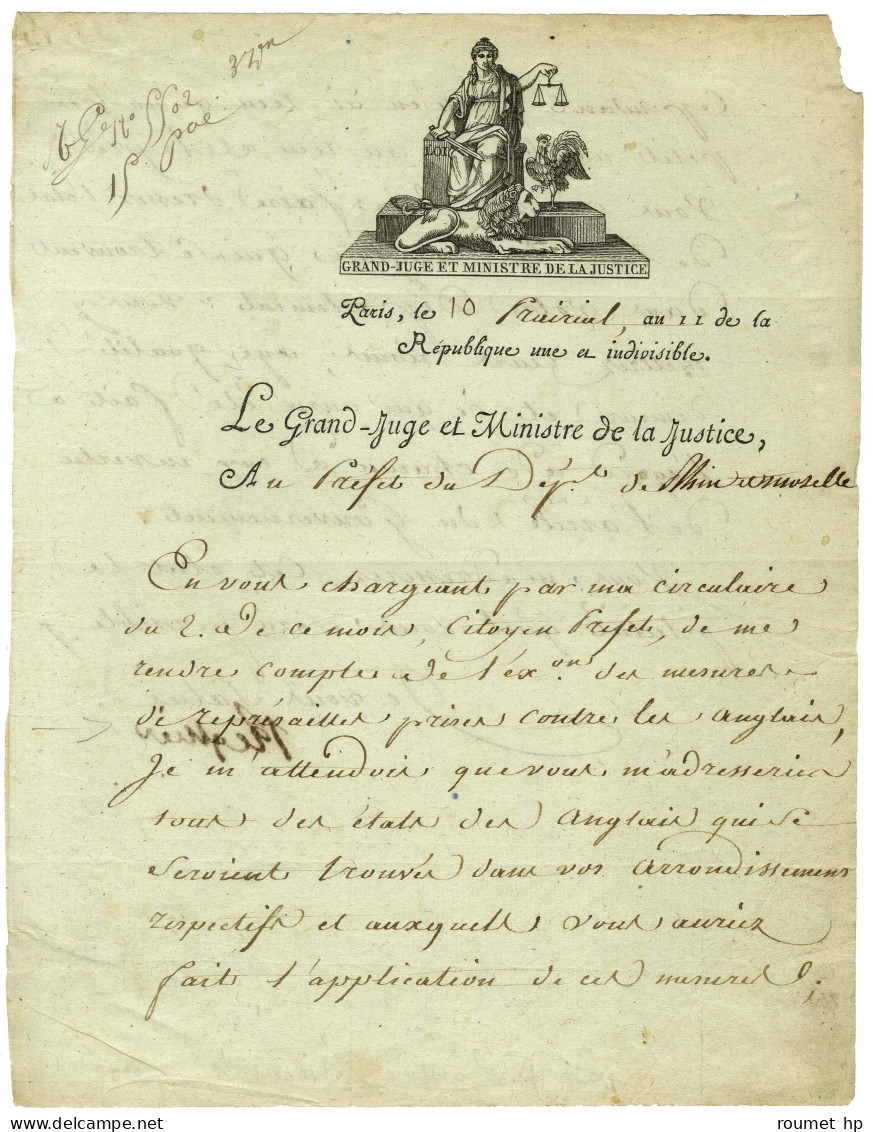 LOI
GRAND-JUGE ET MINISTRE DE LA JUSTICE
Paris, le 10 Prairial, an 11 de la
République une et indivisible.
Le Grand-Juge et Ministre de la Justice,
Au Préfet du Dép.t de Rhin et moselle
En vous chargeant par ma circulaire
du 2. de ce mois, Citoyen Préfet, de me
rendre compte de l'ex.on des mesures
de représailles prises contre les anglais,
Je m'attendois que vous m'adresseriez
tous des états des anglais qui se
seroient trouvés dans vos arrondissemens
respectifs et auxquels vous auriez
fait l'application de ces mesures.
roumet hp